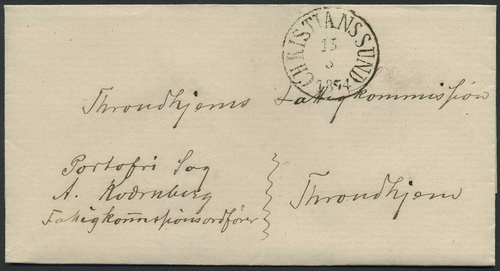 CHRISTIANSSUND
15
3
1874
Throndhjems Fattigkommission
Portofri Sag
A. Kvernberg
Fattigkommissionsordfører
Throndhjem